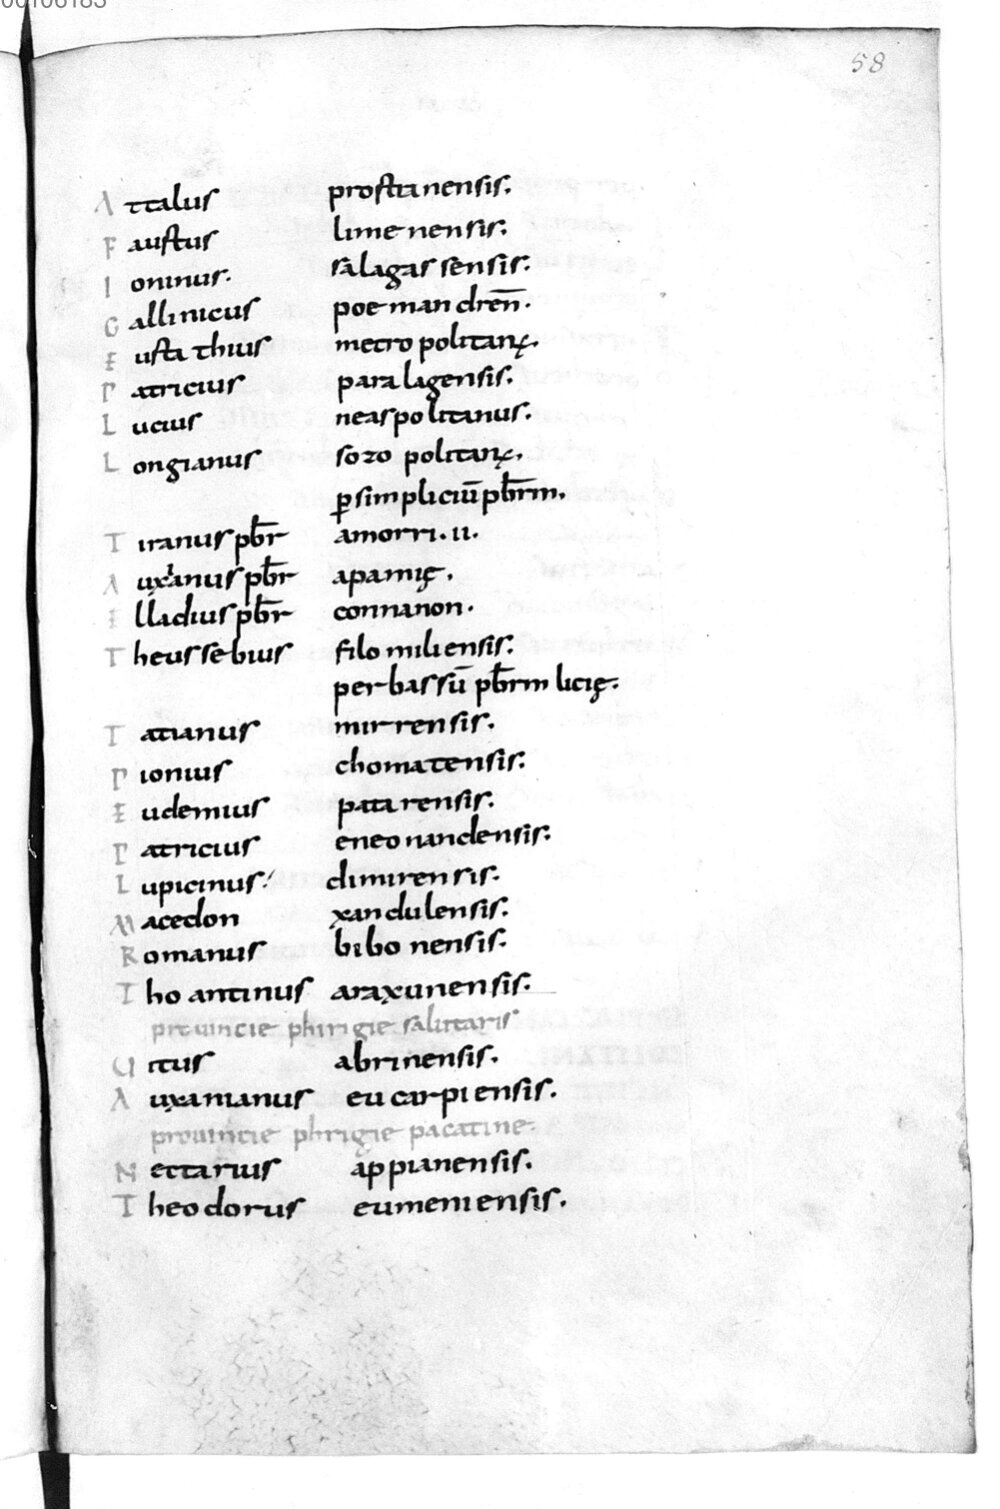 00106183
58
Attalus prostanensis.
Faustus limenensis.
Ioninus. salagassensis.
Gallinicus poemandren̄.
Eustathius metropolitanę.
Patricius paralagensis.
Lucius neaspolitanus.
Longianus sozopolitanę.
p̱simpliciū pb̄rm.
Tiranus pb̄r amorri.ii.
Auxanus pb̄r apamię.
Elladius pb̄r connanon.
Theussebius filomiliensis.
per bassū pb̄rm licię.
Tatianus mirrensis.
Pionius chomatensis.
Eudemius patarensis.
Patricius eneonandensis.
Lupicinus. dimirensis.
Macedon xandulensis.
Romanus bibonensis.
Thoantinus araxunensis.
prouincie phirigie salutaris
Uitus abrinensis.
Auxanianus eucarpiensis.
prouincie phrigie pacatine.
Nectarius appianensis.
Theodorus eumeniensis.